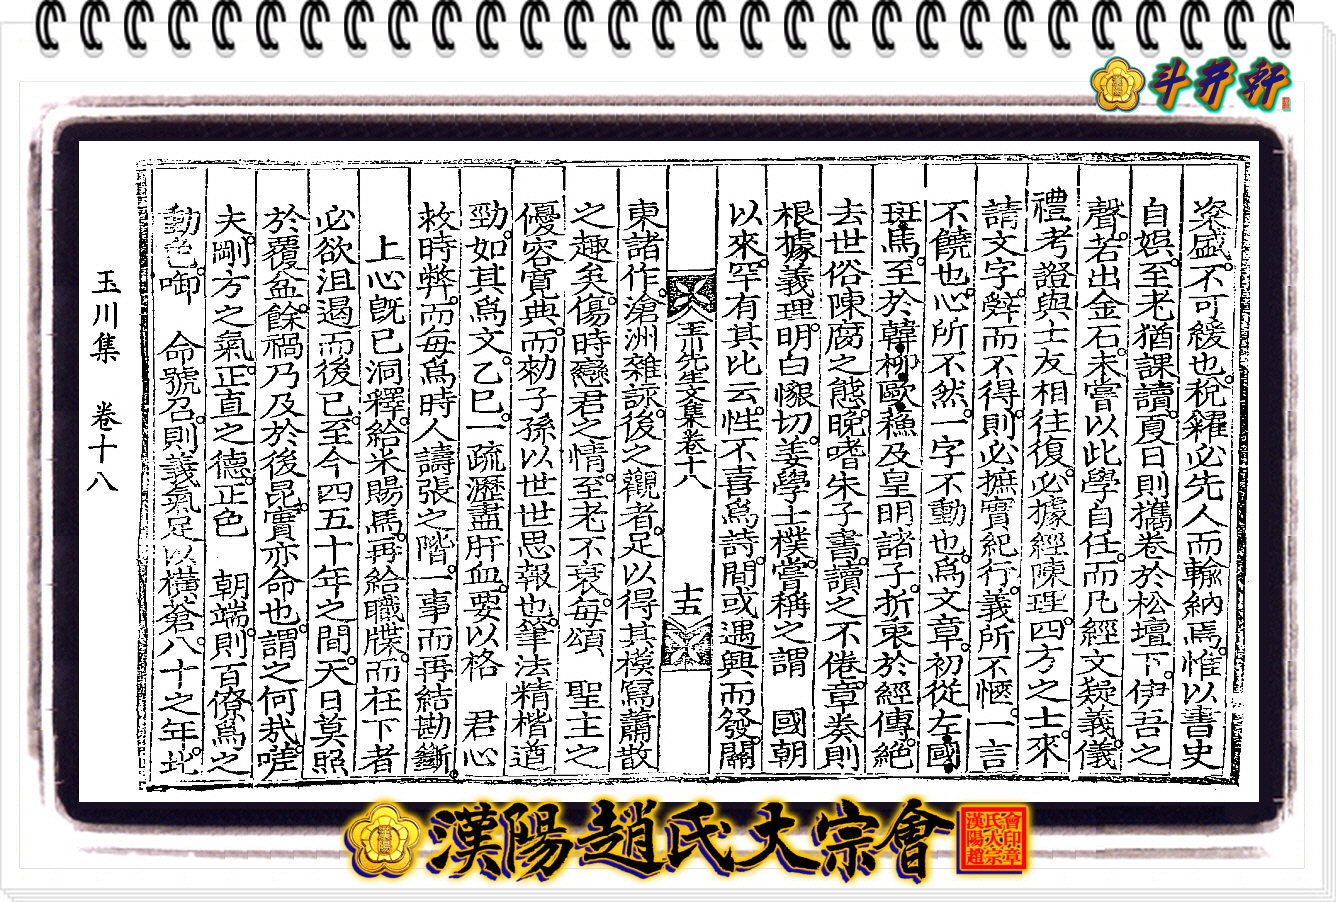 斗井軒
粢盛不可緩也稅糴必先人而輸納焉惟以書史
自娛至老猶課讀夏日則攜卷於松壇下伊吾之
聲若出金石未嘗以此學自任而凡經文疑義儀
禮考證與士友相往復必據經陳理四方之士來
請文字辭而不得則必摭實紀行義所不愜一言
不饒也心所不然一字不動也爲文章初從左國
班馬至於韓柳歐蘇及皇明諸子折衷於經傳絕
去世俗陳腐之態晩嗜朱子書讀之不倦章奏則
根據義理明白懇切姜學士樸嘗稱之謂 國朝
以來罕有其比云性不喜爲詩間或遇興而發關
玉川先生文集卷十八 十五
東諸作滄洲雜詠後之觀者足以得其模寫蕭散
之趣矣傷時戀君之情至老不衰每頌 聖主之
優容寬典而勑子孫以世世思報也筆法精楷遒
勁如其爲文乙巳一疏瀝盡肝血要以格 君心
救時弊而每爲時人譸張之階一事而再結勘斷
上心旣已洞釋給米賜馬再給職牒而在下者
必欲沮遏而後已至今四五十年之間天日莫照
於覆盆餘禍乃及於後昆實亦命也謂之何哉嗟
夫剛方之氣正直之德正色 朝端則百僚爲之
動色啣 命號召則義氣足以橫蒼八十之年北
玉川集 卷十八
漢陽趙氏大宗會
漢陽趙氏大宗會印章